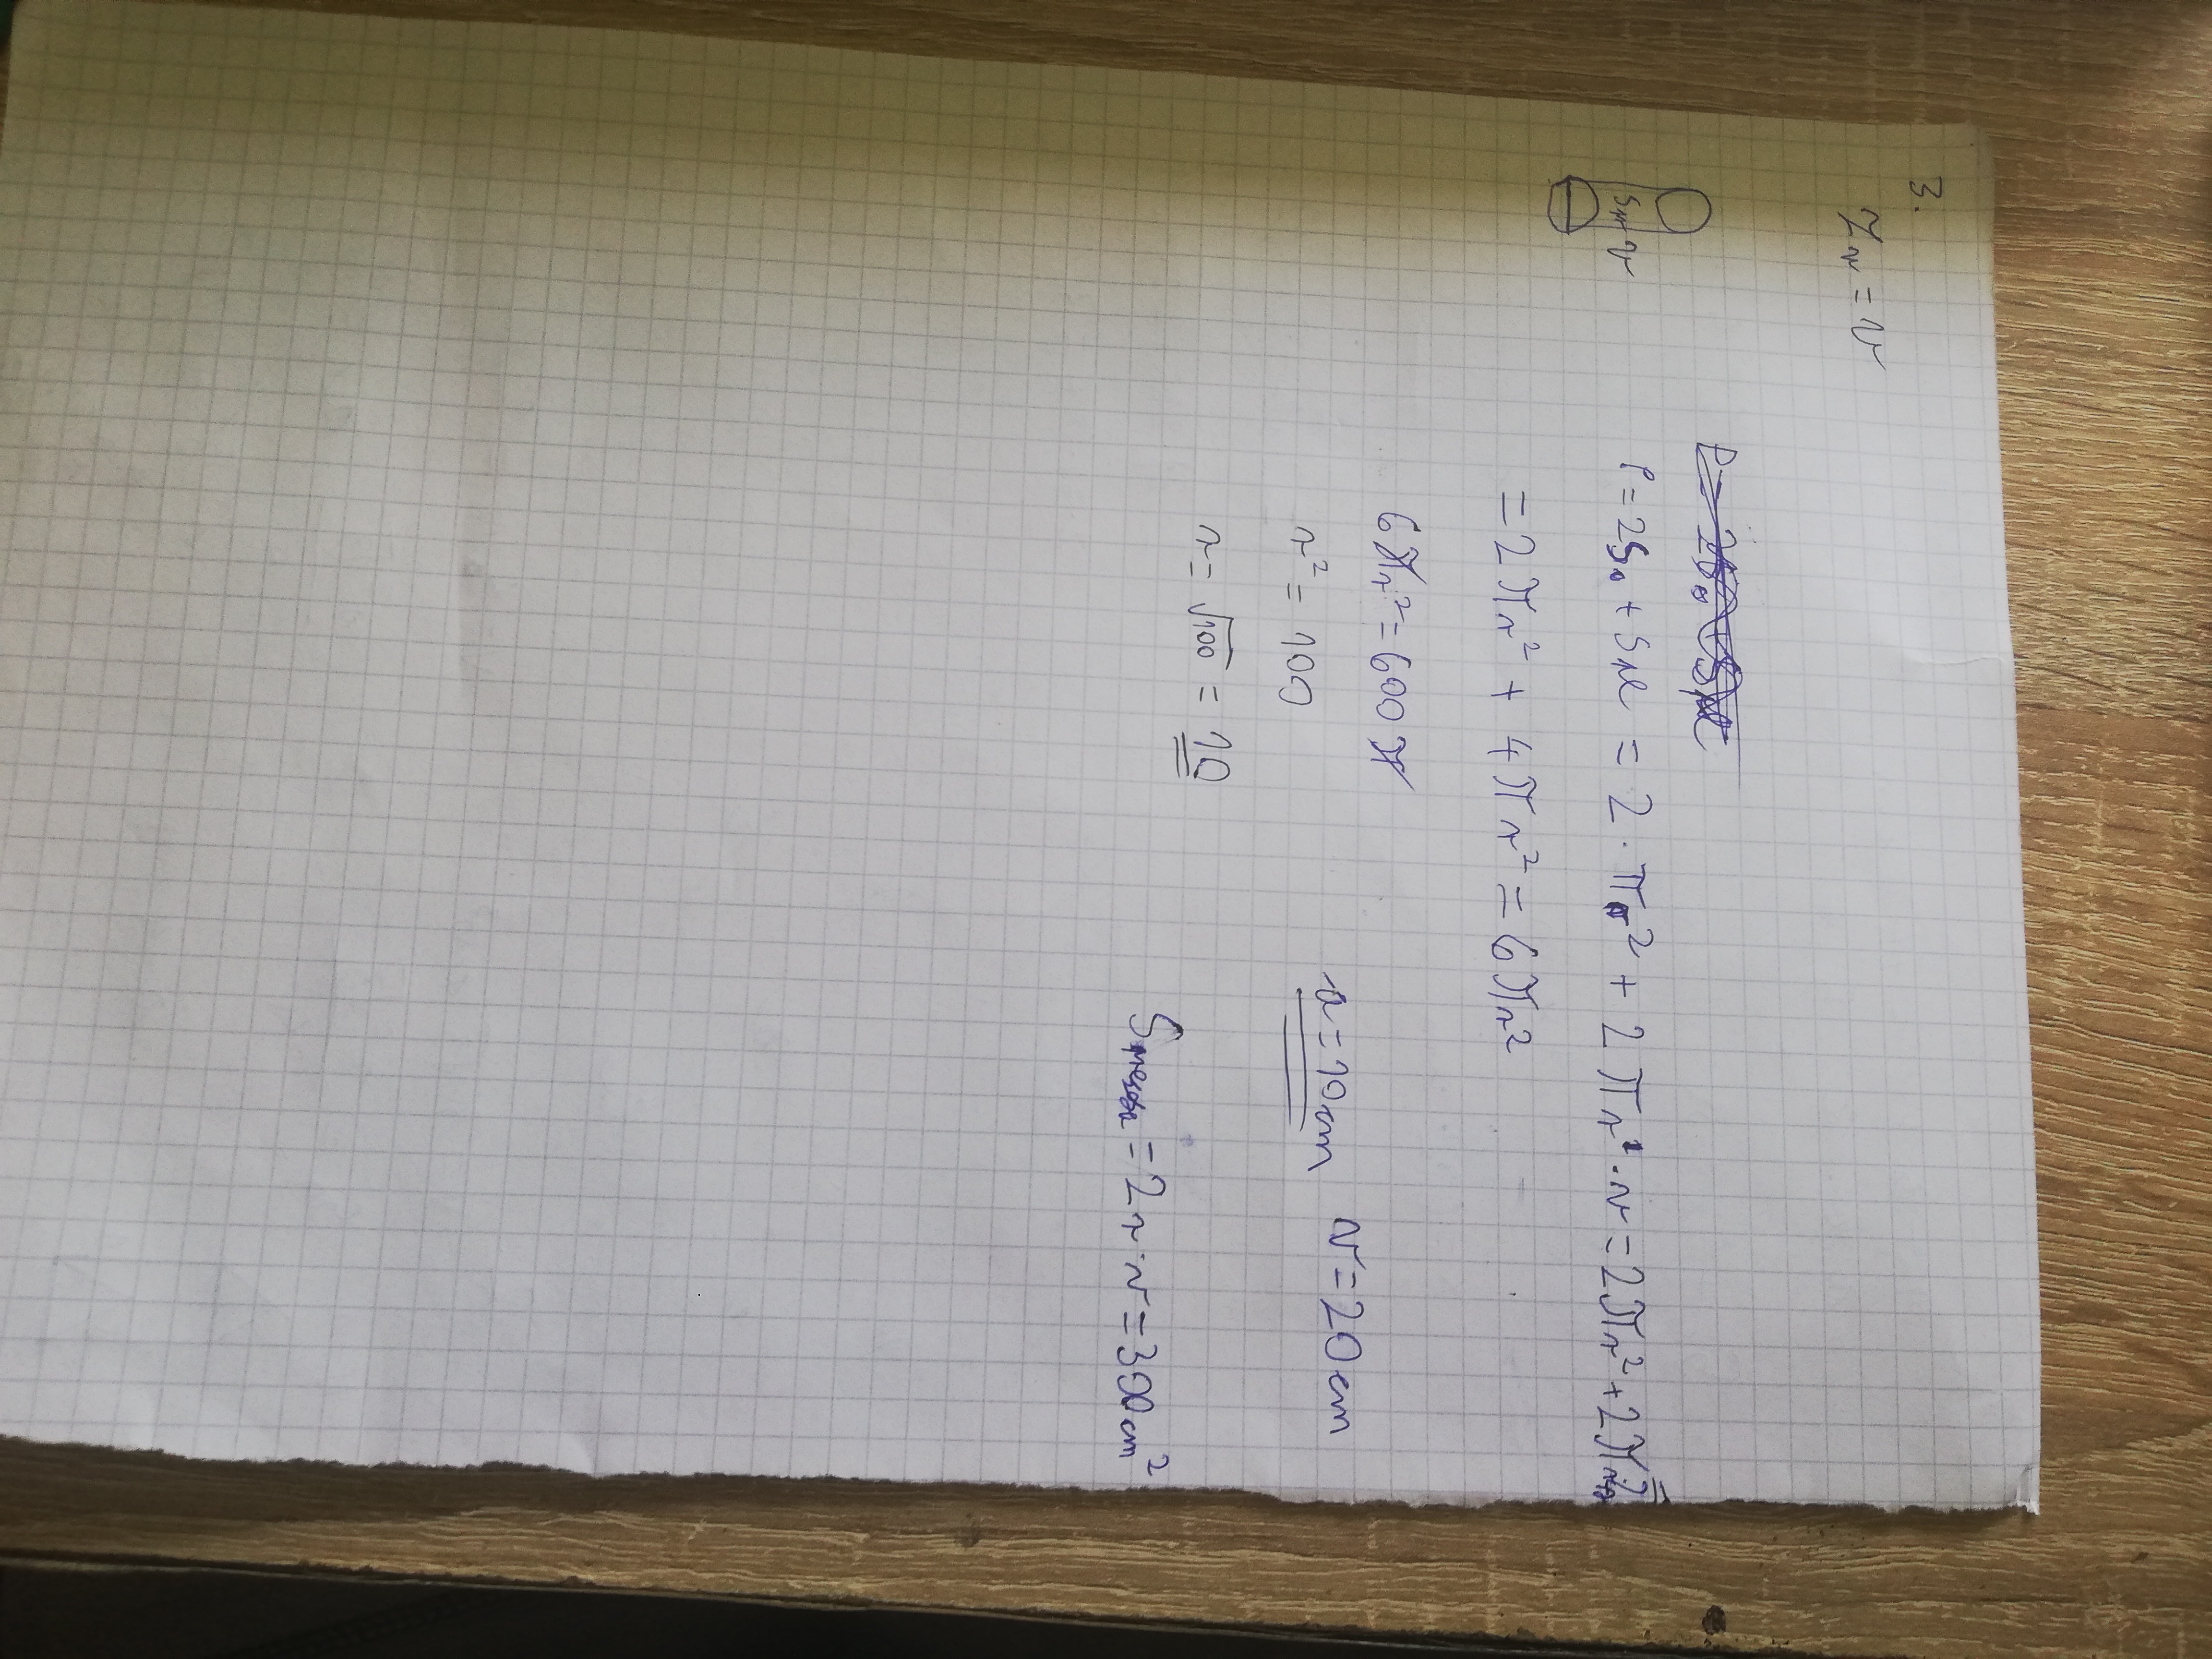 3.
2r = v
v
P = 2S₀ + Spl = 2 · πr² + 2πr · v = 2πr² + 2πr
= 2πr² + 4πr² = 6πr²
6πr² = 600π
r² = 100
r = √100 = 10
r = 10cm v = 20cm
= 2r · v = 300cm²